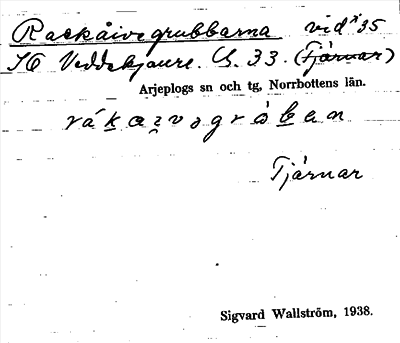 Rackåivegrubbarna vid x 35
SO Veddekjaure. C. 33. (Tjårnar)
Arjeplogs sn och tg, Norrbottens län.
rák a i v o g r ò b a n
Tjärnar
Sigvard Wallström, 1938.